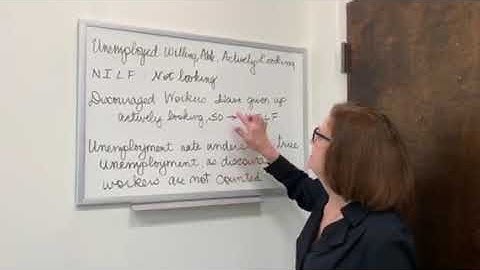 Unemployed Willing, Able, Actively Looking
NILF Not looking
Discouraged Workers Have given up
actively looking, so → LF
Unemployment rate unders true
Unemployment, as discou
workers are not counted